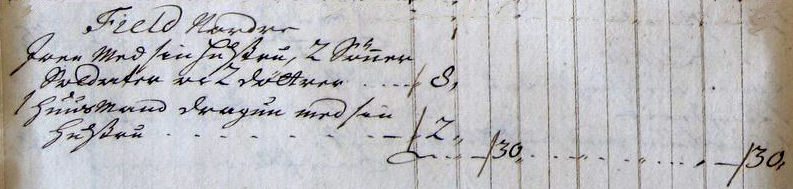 Field Nordre
med sin Hustru, 2 Sönner
Soldater og 2 döttrer .... 8,
1 Huusmand dragun med sin
Hustru . . . . . . . . — 2 „
„ — 30, .. „ .. „ .. „ — 30,